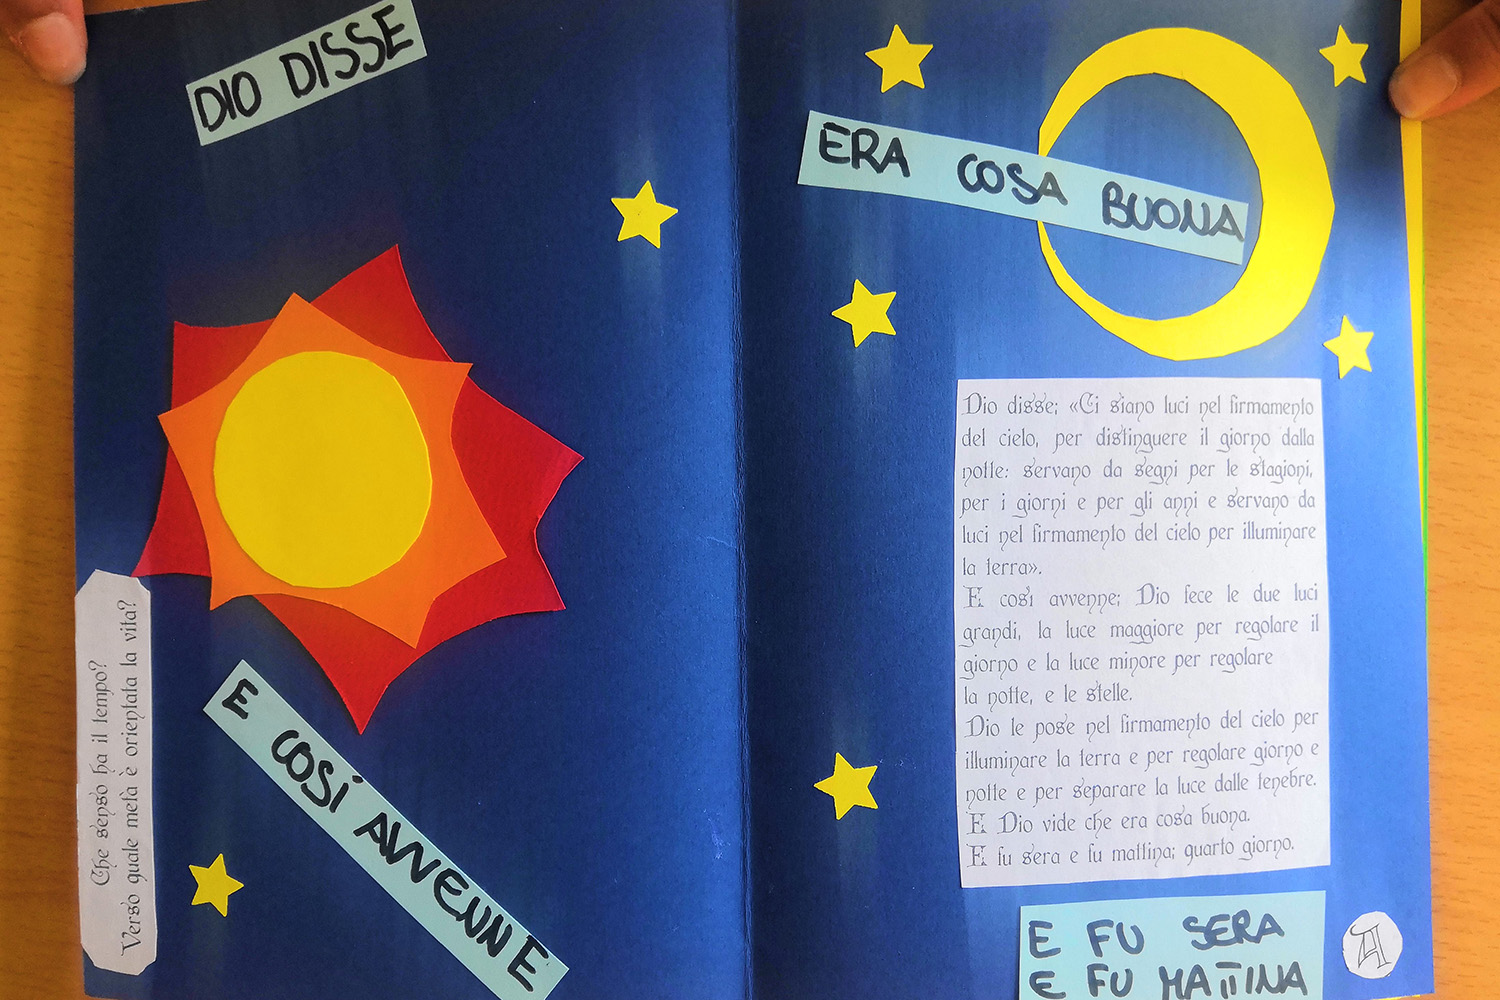 DIO DISSE
E COSÍ AVVENNE
Che senso ha il tempo?
Verso quale metà è orientata la vita?
ERA COSA BUONA
Dio disse: «Ci siano luci nel firmamento
del cielo, per distinguere il giorno dalla
notte: servano da segni per le stagioni,
per i giorni e per gli anni e servano da
luci nel firmamento del cielo per illuminare
la terra».
E così avvenne: Dio fece le due luci
grandi, la luce maggiore per regolare il
giorno e la luce minore per regolare
la notte, e le stelle.
Dio le pose nel firmamento del cielo per
illuminare la terra e per regolare giorno e
notte e per separare la luce dalle tenebre.
E Dio vide che era cosa buona.
E fu sera e fu mattina: quarto giorno.
E FU SERA
E FU MATTINA